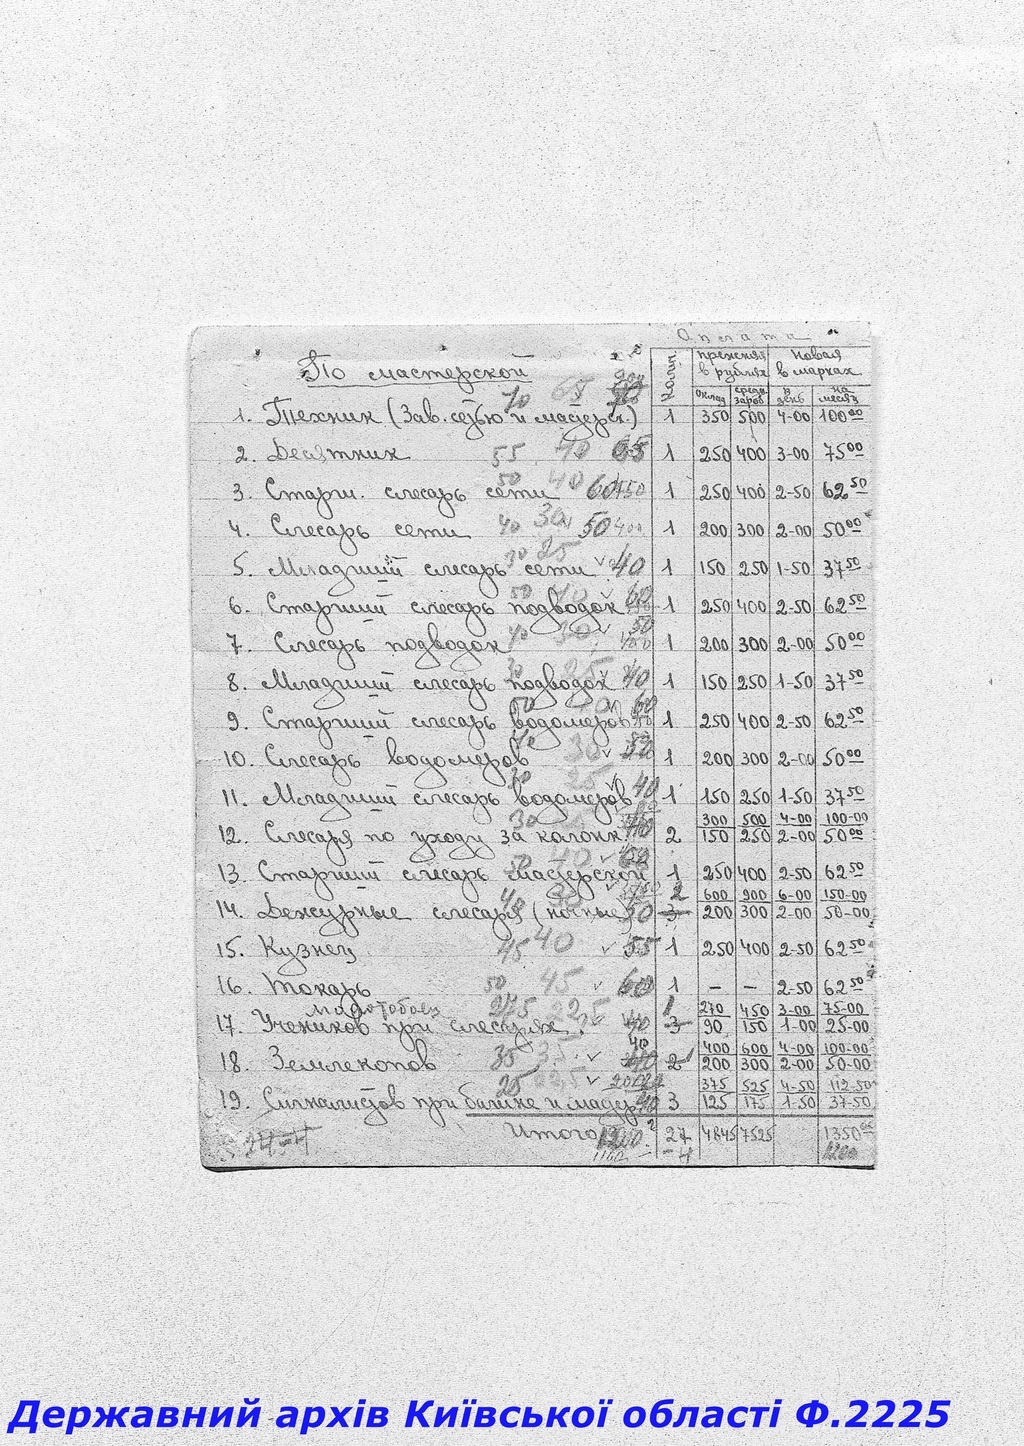 Оплата
По мастерской
Колич.
прежняя в рублях
Новая в марках
Оклад
средн. зараб.
в день
на месяц
1. Техник (Зав. сетью и мастерск.) 70 65 1 350 500 4-00 100 00
2. Десятник 55 40 65 1 250 400 3-00 75 00
3. Старш. слесарь сети 50 40 60 450 1 250 400 2-50 62 50
4. Слесарь сети 40 30 50 400 1 200 300 2-00 50 00
5. Младший слесарь сети 30 25 40 1 150 250 1-50 37 50
6. Старший слесарь подводок 50 40 60 1 250 400 2-50 62 50
7. Слесарь подводок 40 30 50 1 200 300 2-00 50 00
8. Младший слесарь подводок 30 25 40 1 150 250 1-50 37 50
9. Старший слесарь водомеров 50 40 60 1 250 400 2-50 62 50
10. Слесарь водомеров 40 30 50 1 200 300 2-00 50 00
11. Младший слесарь водомеров 30 25 40 1 150 250 1-50 37 50
300 500 4-00 100-00
12. Слесаря по уходу за колонк. 30 2 150 250 2-00 50 00
13. Старший слесарь мастерской 50 40 60 1 250 400 2-50 62 50
2 600 900 6-00 150-00
14. Дежурные слесаря (ночные) 40 30 50 3 200 300 2-00 50-00
15. Кузнец 45 40 55 1 250 400 2-50 62 50
16. Токарь 50 45 60 1 – – 2-50 62 50
275 22,5 1 270 450 3-00 75-00
17. Учеников при слесарях. 40 3 90 150 1-00 25-00
40 400 600 4-00 100-00
18. Землекопов 35 35 2 200 300 2-00 50-00
25 22,5 375 525 4-50 112-50
19. Сигналистов при башне и мастер. 3 125 175 1-50 37-50
Итого 27 4845 7525 1350 00
1160 -4
Державний архів Київської області Ф.2225